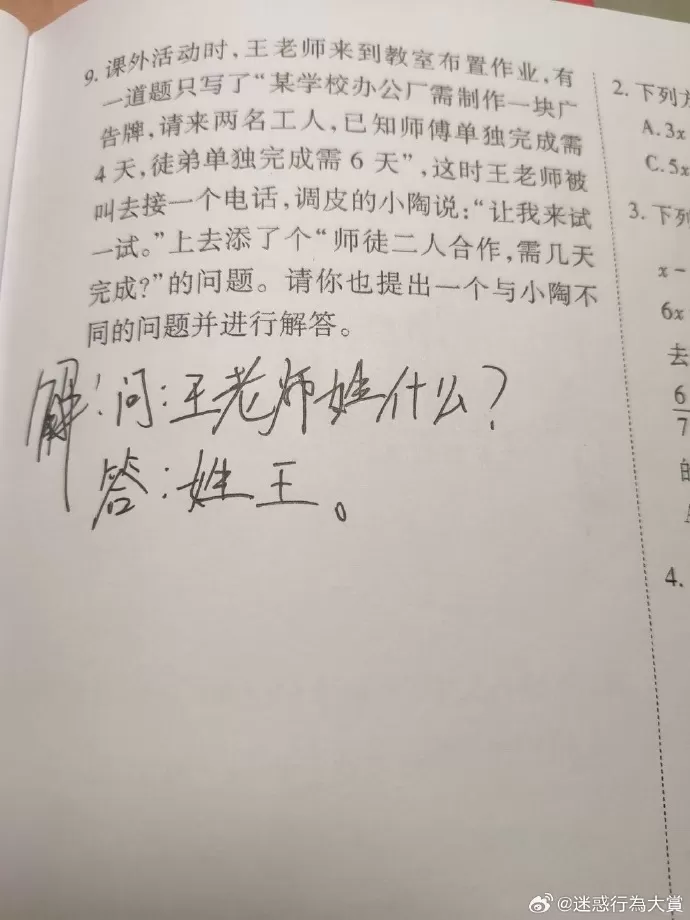 9. 课外活动时,王老师来到教室布置作业,有
一道题只写了“某学校办公厂需制作一块广
告牌,请来两名工人,已知师傅单独完成需
4天,徒弟单独完成需6天”,这时王老师被
叫去接一个电话,调皮的小陶说:“让我来试
一试。”上去添了个“师徒二人合作,需几天
完成?”的问题。请你也提出一个与小陶不
同的问题并进行解答。
解:问:王老师姓什么?
答:姓王。
2. 下列方
A. 3x
C. 5x
3. 下列
x-
6x
去
6
7
的
4.
@迷惑行為大賞